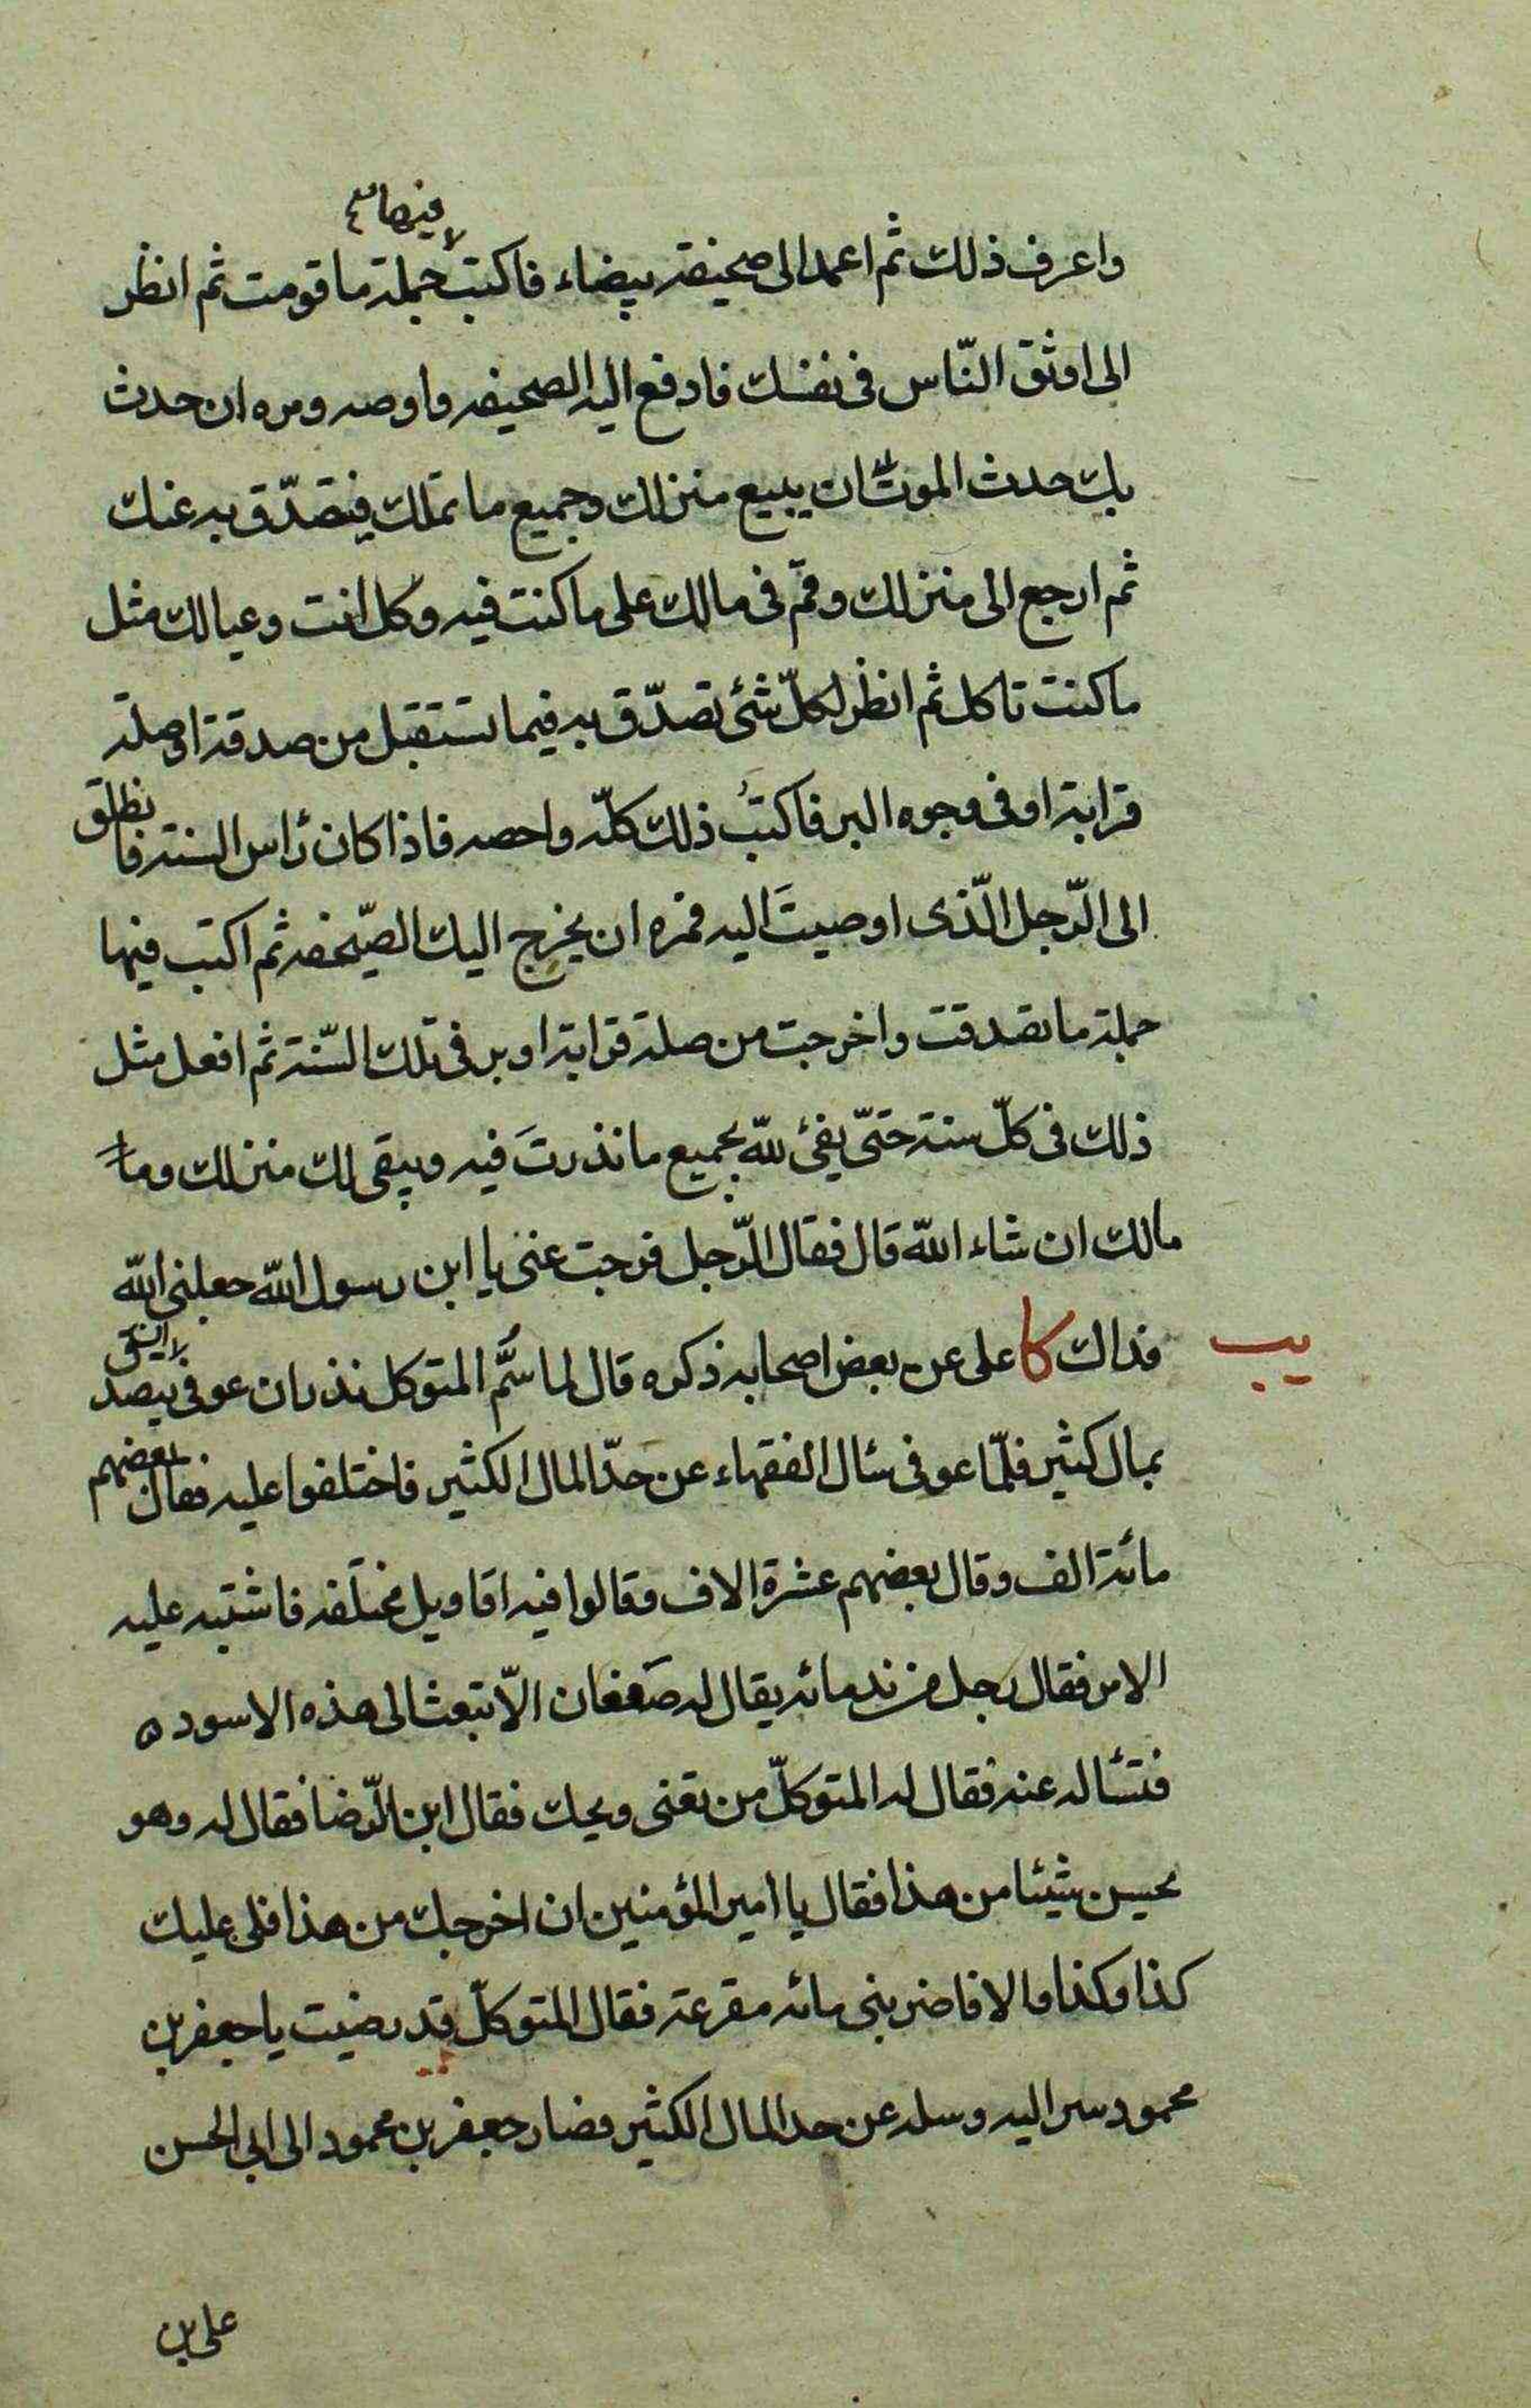 فيها
واعرف ذلك ثم اعمد الى صحيفة بيضاء فاكتب جملة ما قومت ثم انظر
الى اوثق النّاس فى نفسك فادفع اليه الصحيفه واوصه ومره ان حدث
بك حدث الموت ان يبيع منزلك وجميع ما تملك فيتصدّق به عنك
ثم ارجع الى منزلك وقم فى مالك على ما كنت فيه وكل انت وعيالك مثل
ما كنت تاكل ثم انظر لكلّ شئ تصدّق به فيما تستقبل من صدقة او صلة
قرابة او فى وجوه البر فاكتب ذلك كلّه واحصه فاذا كان رأس السنة فانطلق
الى الرّجل الّذى اوصيتَ اليه فمره ان يخرج اليك الصّحيفه ثم اكتب فيها
جملة ما تصدقت واخرجت من صلة قرابة او بر فى تلك السّنة ثم افعل مثل
ذلك فى كلّ سنة حتّى يفئ للّه بجميع ما نذرتَ فيه ويبقى لك منزلك وما
مالك ان شاء اللّه قال فقال الرّجل فرجت عنى يا ابن رسول اللّه جعلنى اللّه
يب
فداك كا على عن بعض اصحابه ذكره قال لما سُمَّ المتوكل نذر ان عوفى يتصدق
بمال كثير فلمّا عوفى سئال الفقهاء عن حدّ المال الكثير فاختلفوا عليه فقال بعضهم
مائة الف وقال بعضهم عشرة الاف وقالوا فيه اقاويل مختلفه فاشتبه عليه
الامر فقال رجل من ندمائه يقال له صَفعان الاّ تبعث الى هذه الاسود ه
فتسئاله عنه فقال له المتوكلّ من تعنى ويحك فقال ابن الرّضا فقال له وهو
يحسن شيئا من هذا فقال يا امير المؤمنين ان اخرجك من هذا فلى عليك
كذا وكذا والا فاضربنى مائه مقرعة فقال المتوكلّ قد رضيت يا جعفر بن
محمود سر اليه وسله عن حد المال الكثير فصار جعفر بن محمود الى ابى الحسن
على بن